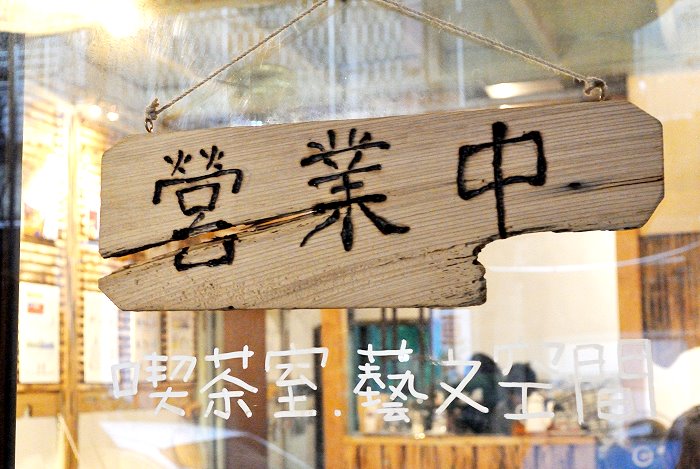 營業中
喫茶室.藝文空間
©